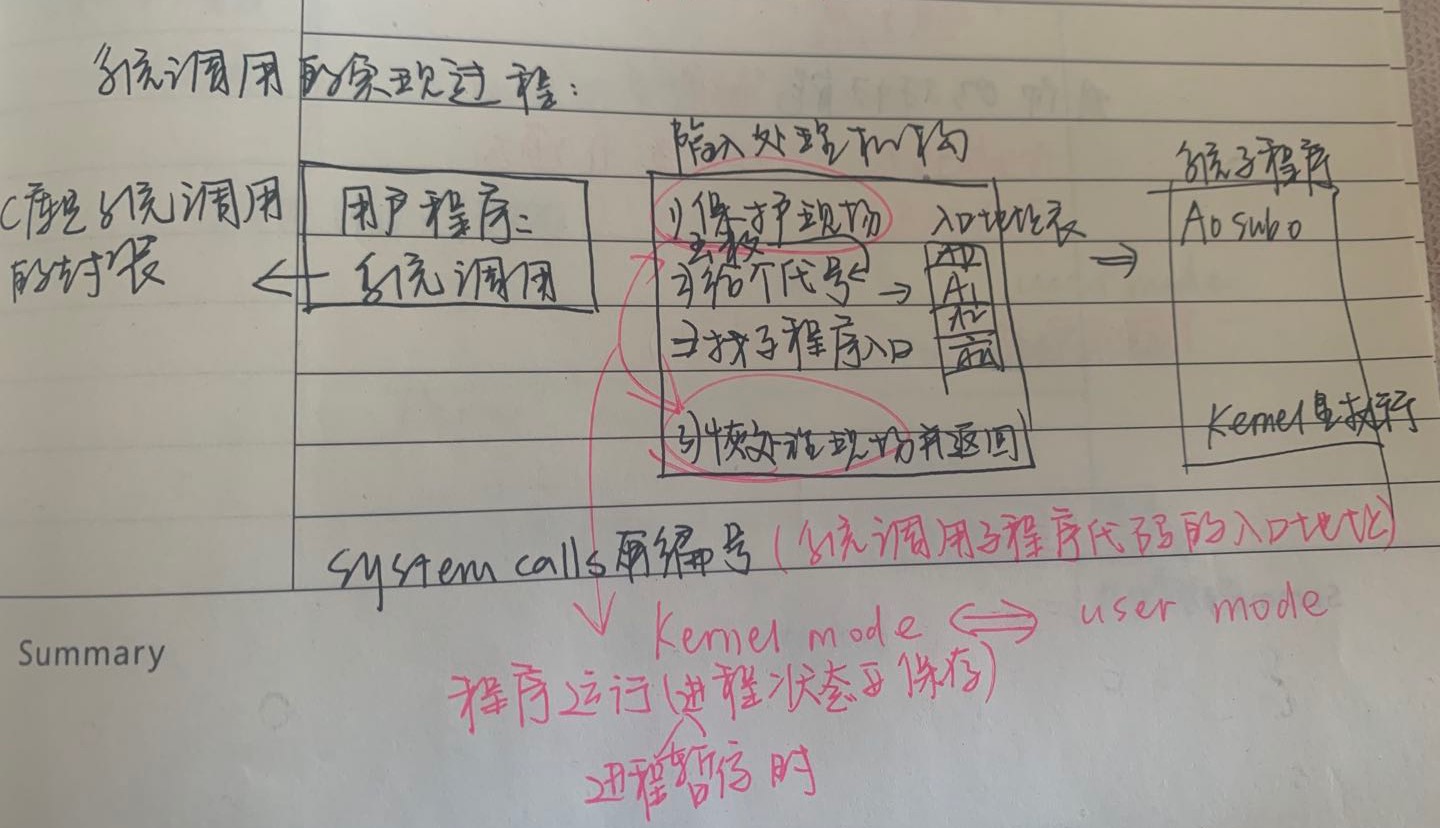 系统调用的实现过程：
陷入处理机构
系统子程序
C库是系统调用
的封装
用户程序：
系统调用
1)保护现场
2)给个代号
→找子程序入口
3)恢复处理现场并返回
入口地址表
A0
A1
A2
An
A0 sub0
Kernel里执行
system calls有编号(系统调用子程序代码的入口地址)
Kernel mode ⟺ user mode
程序运行(进程状态要保存)
进程暂停时
Summary